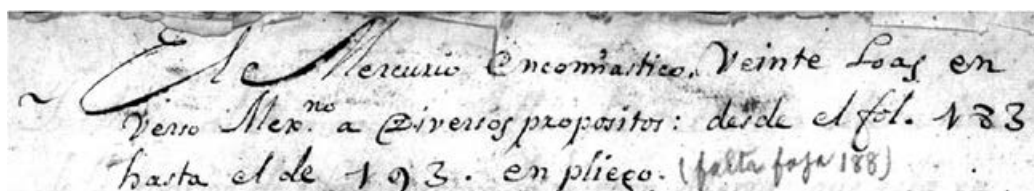 El Mercurio Encomiastico. Veinte Loas en
Verso Mex.no a Diversos propositos: desde el fol. 183
hasta el de 193. en pliego. (falta foja 188)